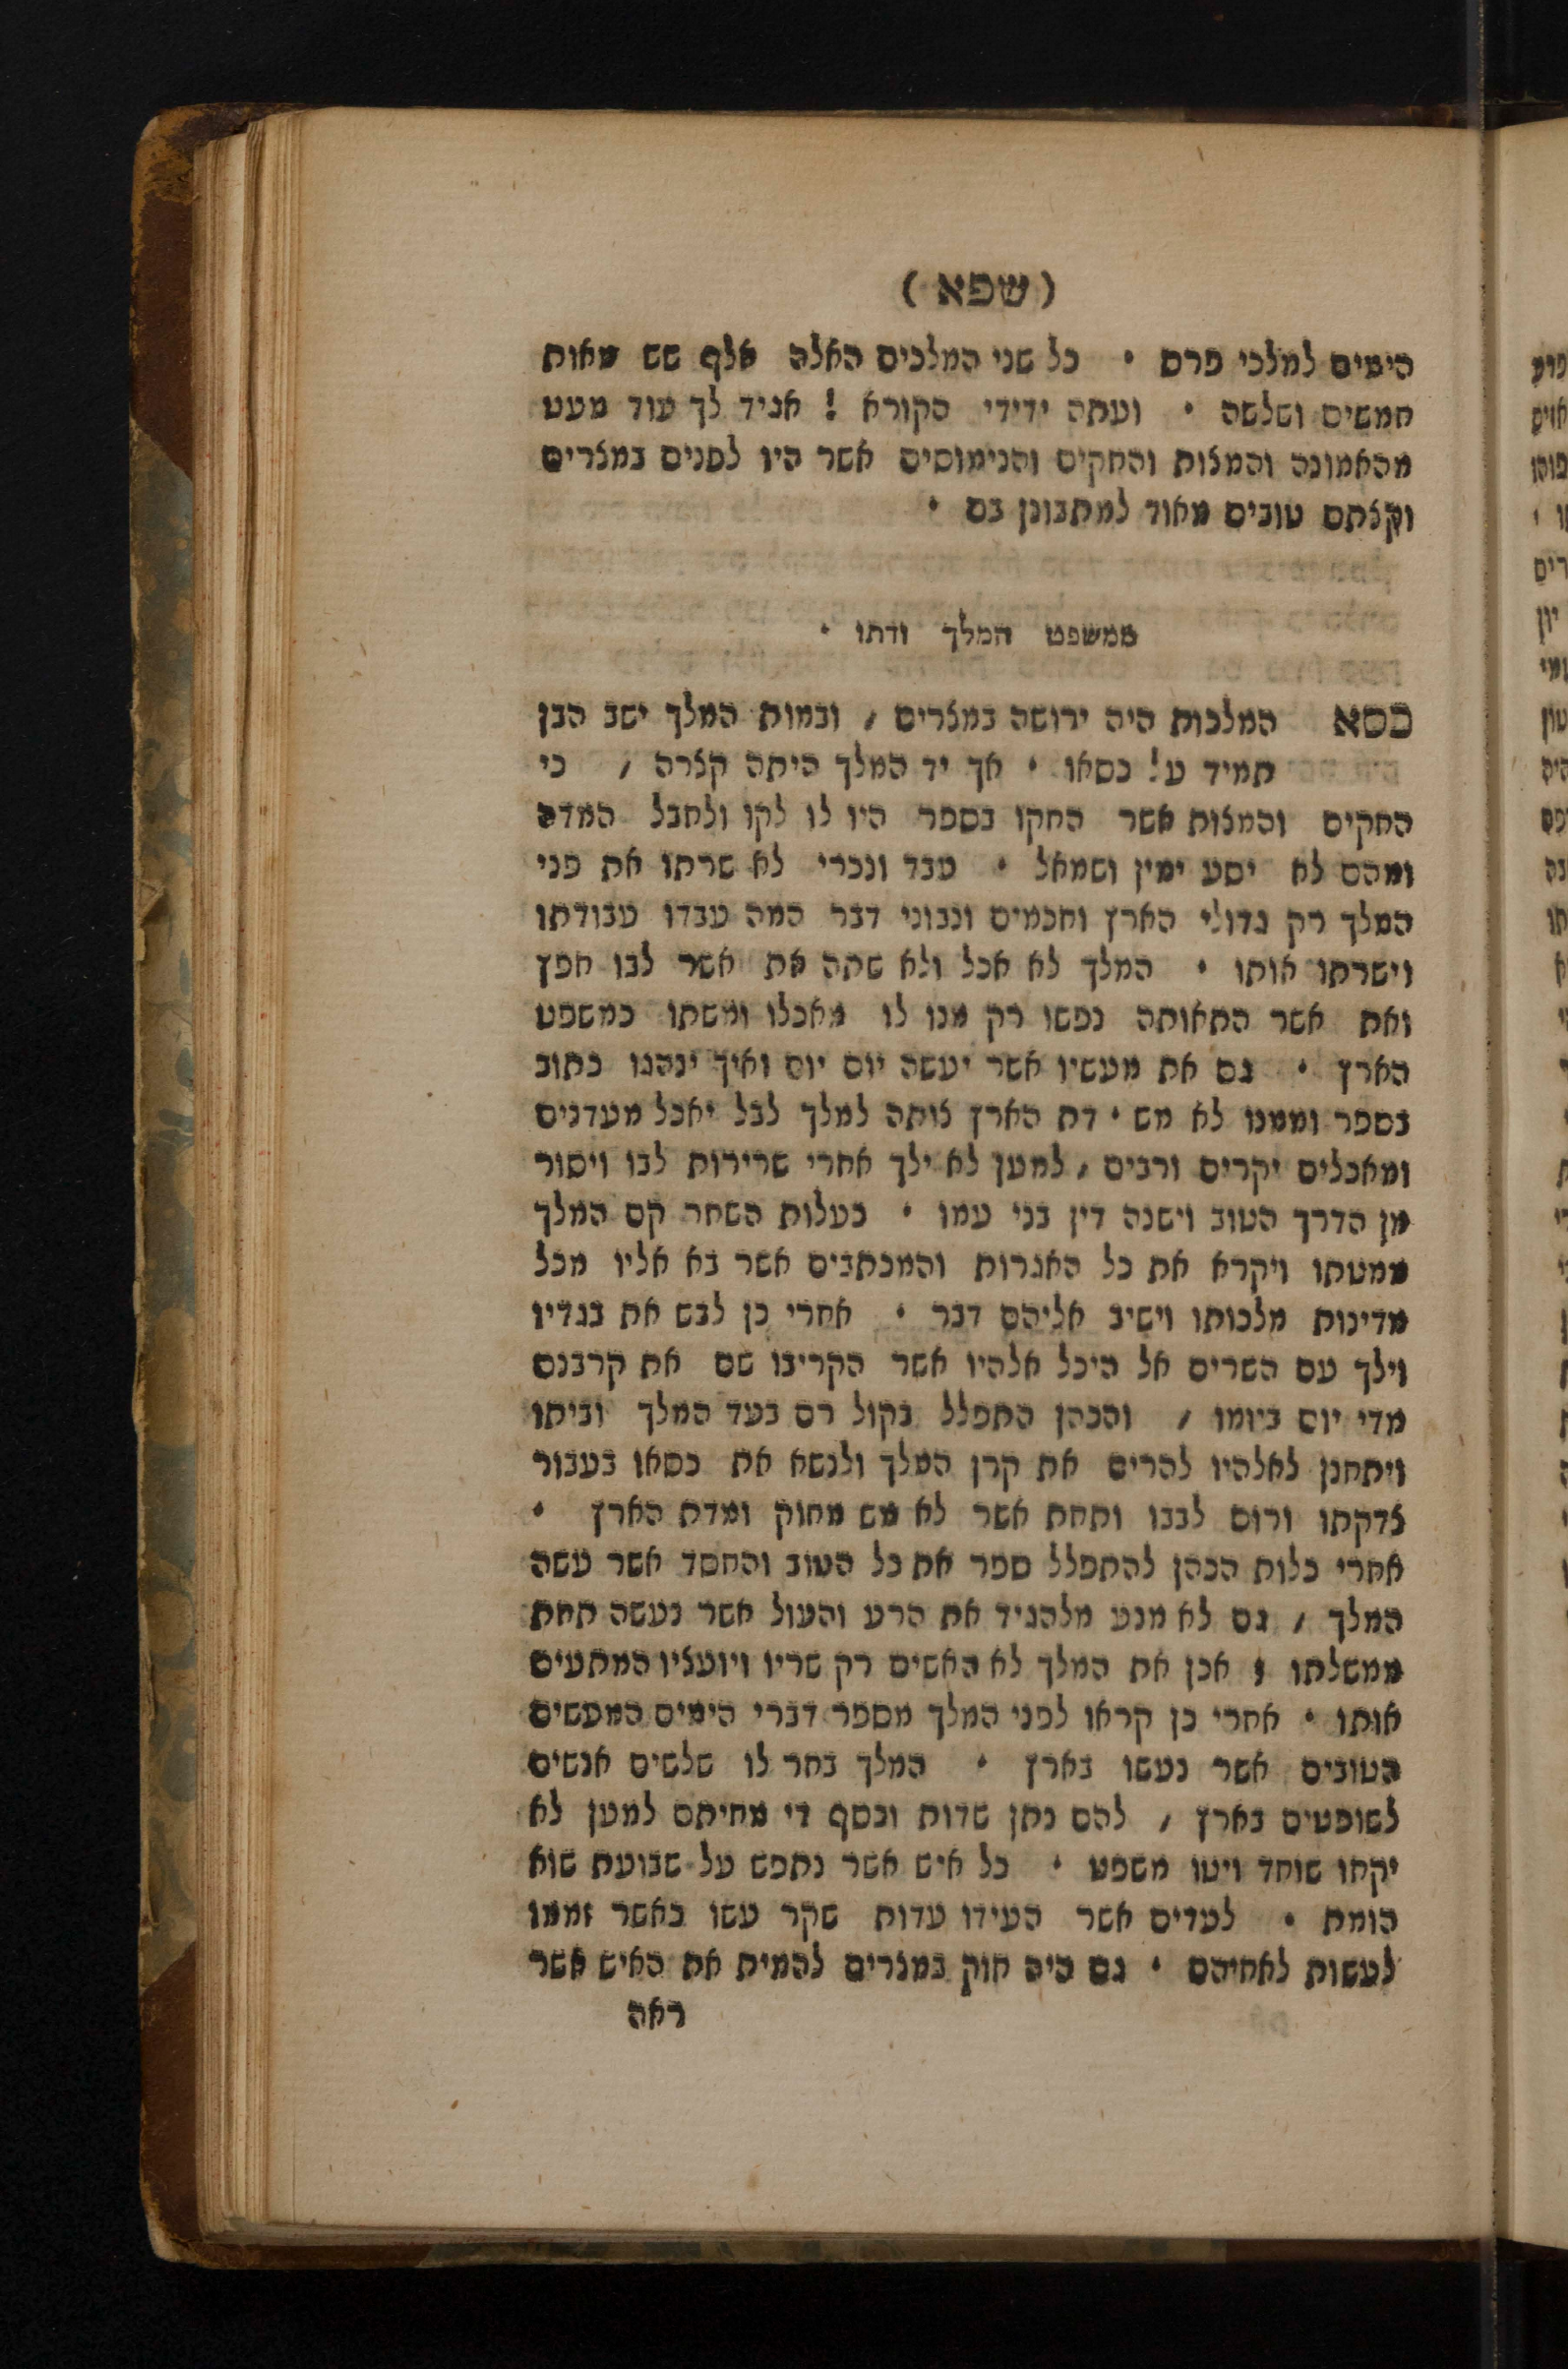 (שפא)
הימים למלכי פרס · כל שני המלכים האלה אלף שש מאות
חמשים ושלשה · ועתה ידידי הקורא ! אגיד לך עוד מעט
מהאמונה והמצות והחקים והנימוסים אשר היו לפנים במצרים
וקצתם טובים מאוד למתבונן בם ·
ממשפט המלך ודתו ·
כסא המלכות היה ירושה במצרים , ובמות המלך ישב הבן
תמיד על כסאו · אך יד המלך היתה קצרה , כי
החקים והמצות אשר החקו בספר היו לו לקו ולחבל המדה
ומהם לא יסע ימין ושמאל · עבד ונכרי לא שרתו את פני
המלך רק גדולי הארץ וחכמים ונבוני דבר המה עבדו עבודתו
וישרתו אותו · המלך לא אכל ולא שתה את אשר לבו חפץ
ואת אשר התאותה נפשו רק מנו לו מאכלו ומשתו כמשפט
הארץ · גם את מעשיו אשר יעשה יום יום ואיך ינהגו כתוב
בספר וממנו לא מש · דת הארץ צותה למלך לבל יאכל מעדנים
ומאכלים יקרים ורבים , למען לא ילך אחרי שרירות לבו ויסור
מן הדרך הטוב וישנה דין בני עמו · בעלות השחר קם המלך
ממטתו ויקרא את כל האגרות והמכתבים אשר בא אליו מכל
מדינות מלכותו וישיב אליהם דבר · אחרי כן לבש את בגדיו
וילך עם השרים אל היכל אלהיו אשר הקריבו שם את קרבנם
מדי יום ביומו , והכהן התפלל בקול רם בעד המלך וביתו
ויתחנן לאלהיו להרים את קרן המלך ולנשא את כסאו בעבור
צדקתו ורום לבבו ותחת אשר לא מש מחוק ומדת הארץ ·
אחרי כלות הכהן להתפלל ספר את כל הטוב והחסד אשר עשה
המלך , גם לא מנע מלהגיד את הרע והעול אשר נעשה תחת
ממשלתו ; אכן את המלך לא האשים רק שריו ויועציו המתעים
אותו · אחרי כן קראו לפני המלך מספר דברי הימים המעשים
הטובים אשר נעשו בארץ · המלך בחר לו שלשים אנשים
לשופטים בארץ , להם נתן שדות וכסף די מחיתם למען לא
יקחו שוחד ויטו משפט · כל איש אשר נתפש על שבועת שוא
הומת · לעדים אשר העידו עדות שקר עשו כאשר זממו
לעשות לאחיהם · גם היה חוק במצרים להמית את האיש אשר
ראה